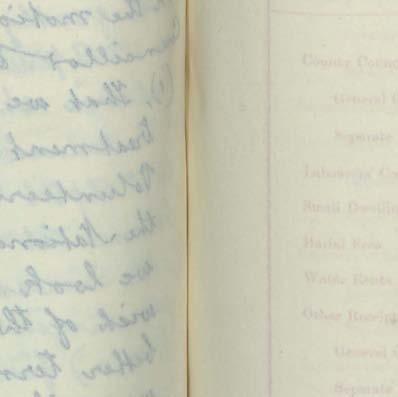 the motion
Councillor
(1). That we
treatment
Volunteers
the National
we look
wish of th
better ter
County Counc
General
Separate
Labourers' Co
Small Dwellin
Burial Fees
Water Rents
Other Receipt
General
Separate